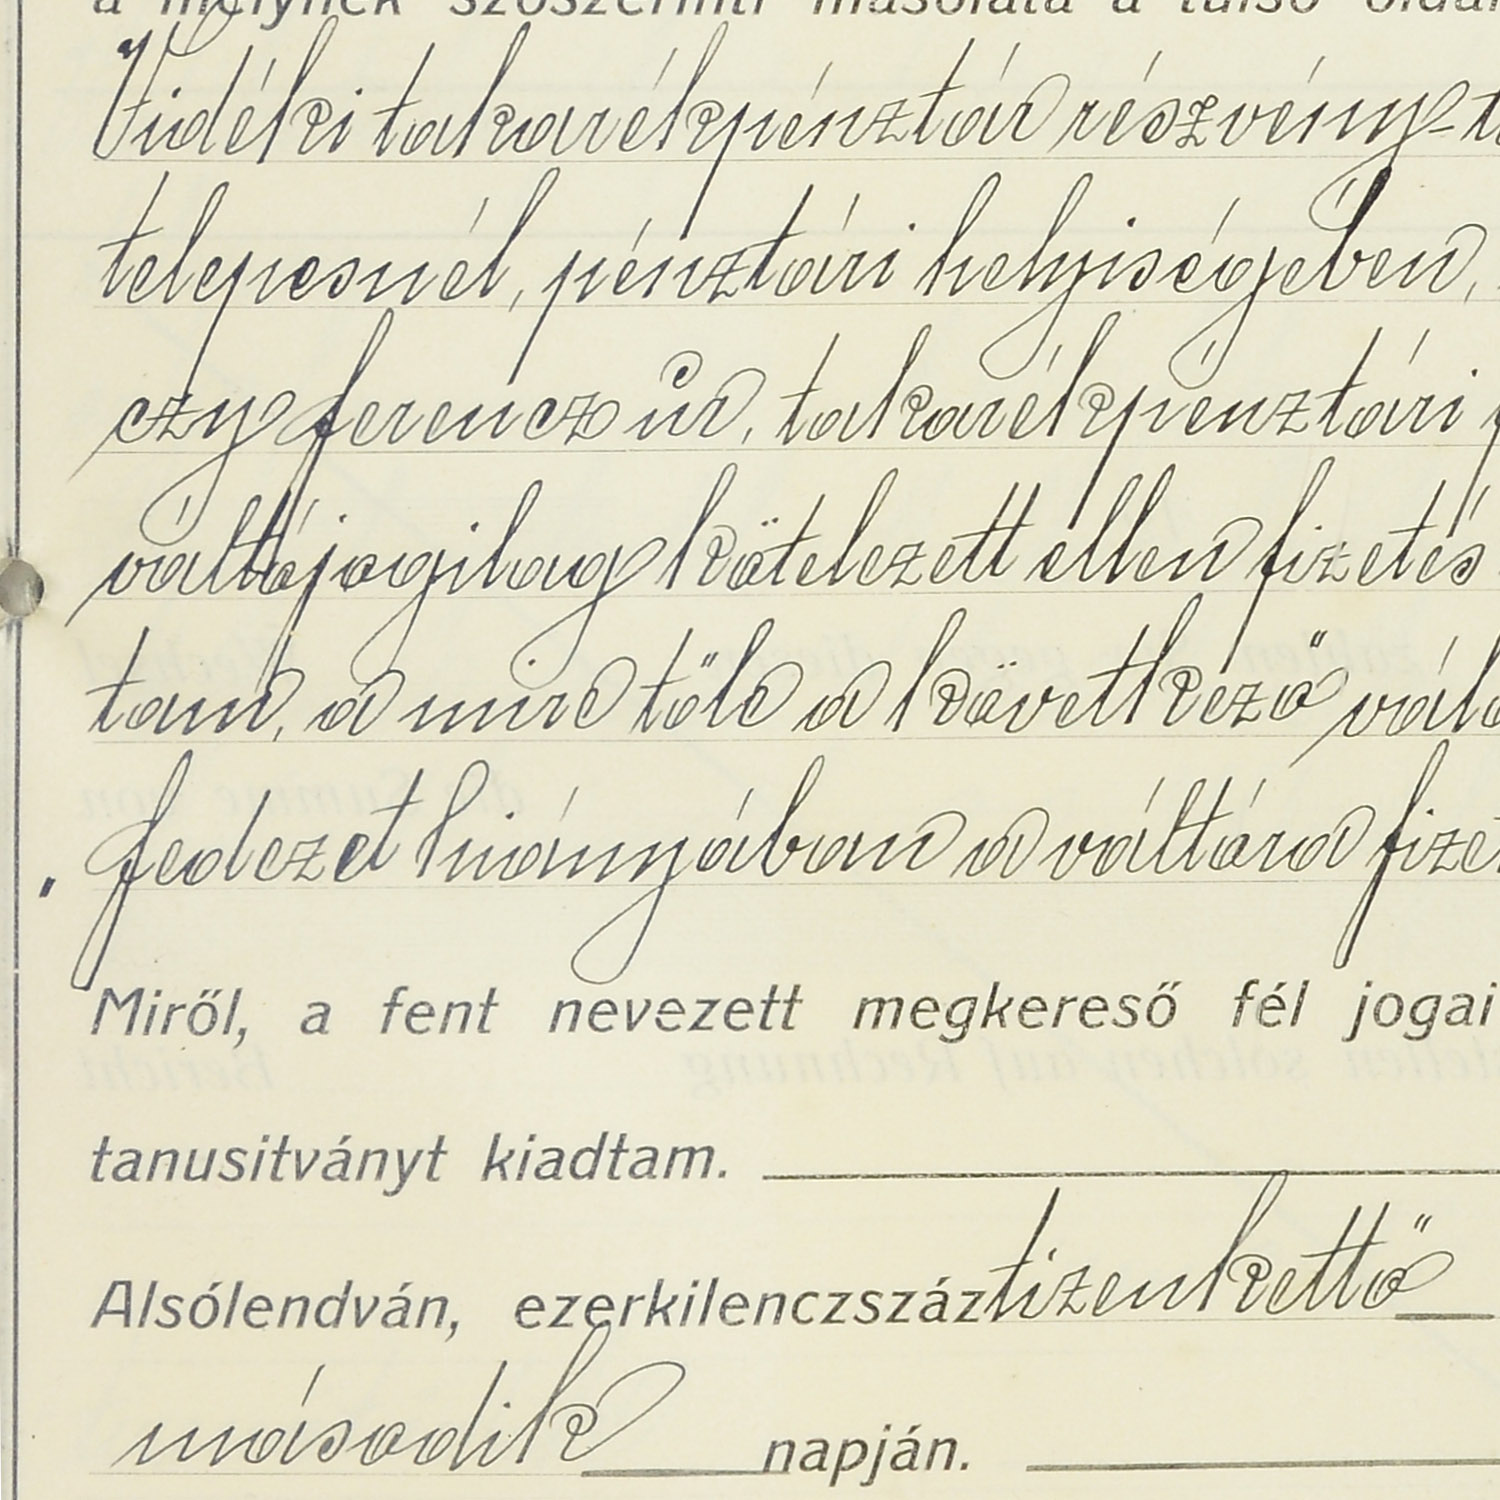 a melynek szószerinti másolata a túlsó
Vidéki takarékpénztár részvény-t
telepesnél, pénztári helyiségében,
czy ferencz úr, takarékpénztári
váltójogilag kötelezett ellen fizetés
tam, a mire tőle a következő vála
"fedezet hiányában a váltóra fizet
Miről, a fent nevezett megkereső fél jogai
tanusitványt kiadtam.
Alsólendván, ezerkilenczszáztizenkettő
második napján.